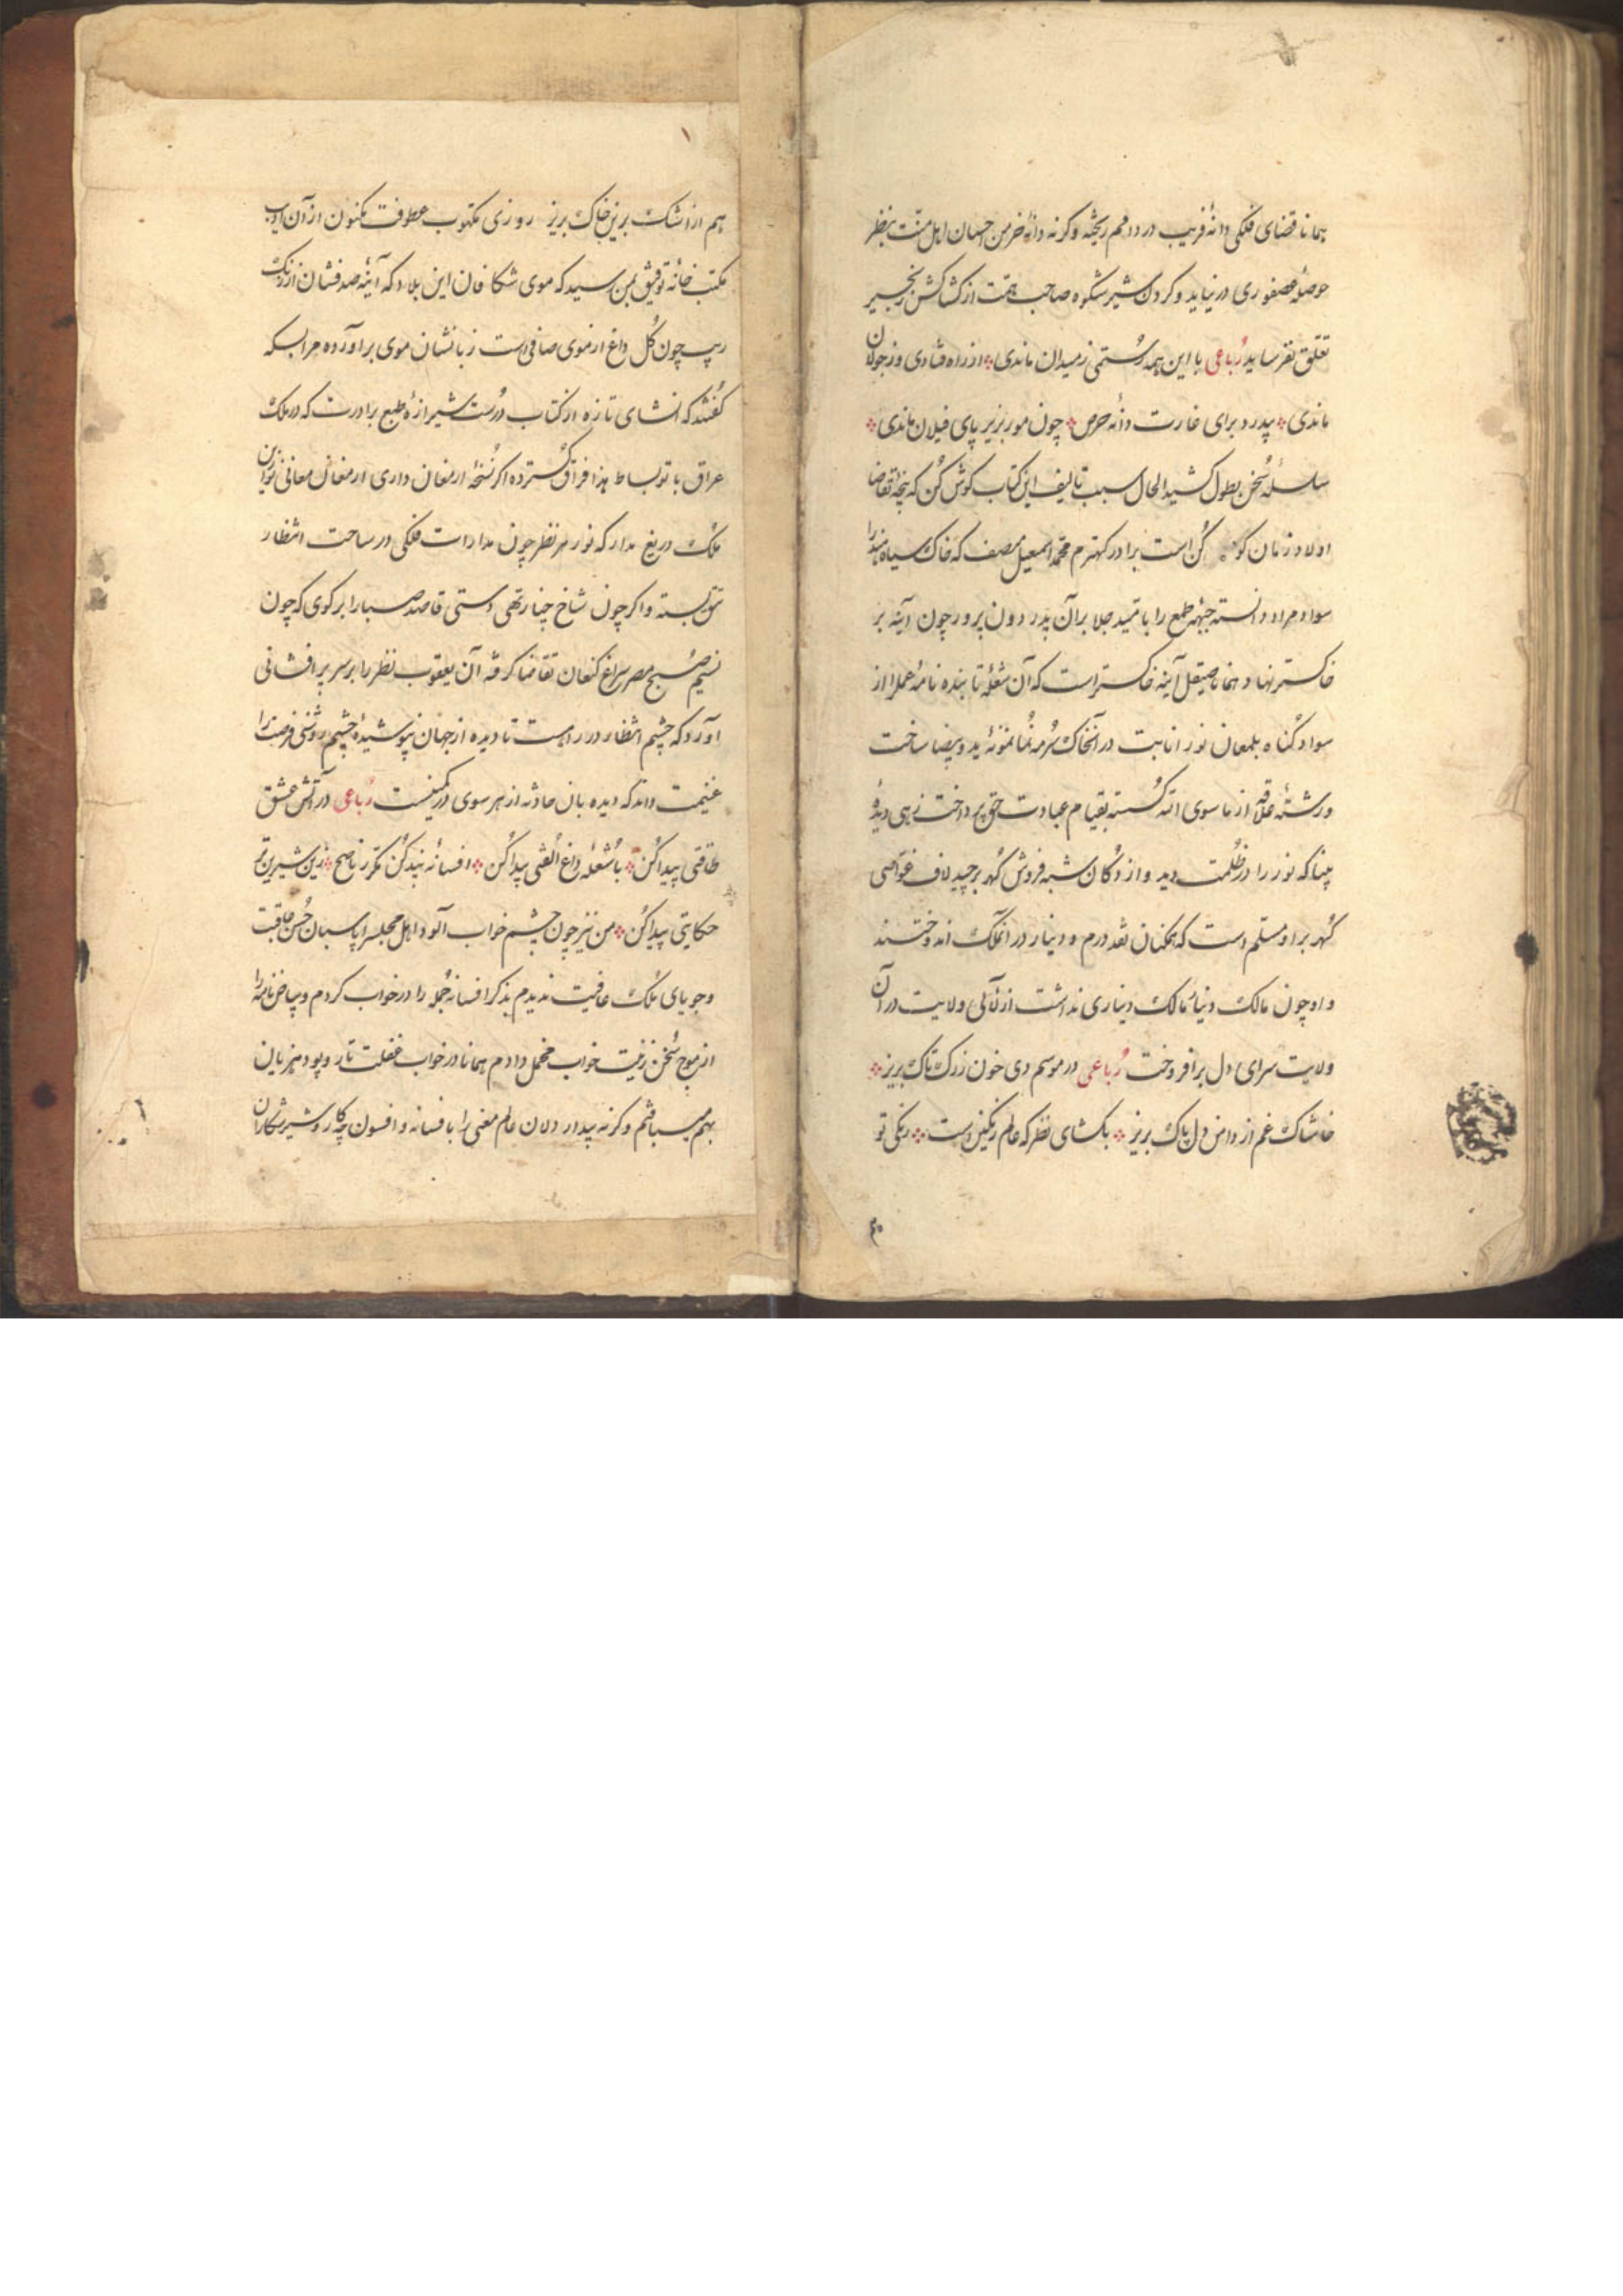 همانا قضای فلکی دانهٔ فریب در دامم ریخته وگرنه دانهٔ خرمن احسان اهل منت بنظر
حوصلهٔ عصفوری درنیاید و گردن شیر شکوه صاحب همت از کشاکش زنجیر
تعلق نفرساید رباعی با این همه رستمی ز میدان ماندی از راه فتادی و ز جولان
ماندی پدرد برای غارت دانه حرص چون مور بزیر پای فیلان ماندی
سلسلهٔ سخن بطول کشید الحال سبب تالیف این کتاب گوش کن که نتیجهٔ تقاضا
اولاد زمان کن است برادر کهترم محمد اسمعیل منصف که خاک سیاه هند را
سواد مراد دانسته جبههٔ طمع را بامید جلا بر آن پدر دون پرور چون آینه بر
خاکستر نهاد همانا صیقل آینه خاکستر است که آن شعلهٔ تابنده نامهٔ عمل را از
سواد گناه بلمعان نور انابت در آنخاک سرمه نما نمونهٔ ید و بیضا ساخت
و رشتهٔ علاقه از ماسوی الله گسسته بقیام عبادت حق پرداخت زهی دیدهٔ
بینا که نور را در ظلمت دید و از دکان شبه فروش گهر برچید لاف غواصی
گهر بر او مسلم است که همکنان نقد درم و دینار در انملک اندوختند
و او چون مالک دنیا مالک دیناری نداشت از لآلی ولایت در آن
ولایت سرای دل برافروخت رباعی در موسم دی خون زرک تاک بریز
خاشاک غم از دامن دل پاک بریز بکشای نظر که عالم رنگین است رنگی تو
۱
هم از اشک برین خاک بریز روزی مکتوب عطوفت مکنون از آن ادیب
مکتب خانهٔ توفیق بمن رسید که موی شکافان این بلاد که آینهٔ صدفشان از زنگ
ریب چون گل داغ از موی صافی است زبانشان موی برآورده مرا بسکه
گفتند که انشای تازه از کتاب درست شیرازهٔ طبع برادرت که در ملک
عراق با تو بساط هذا فراق گسترده اگر نسخهٔ ارمغان داری ارمغان معانی نوآیین
ملک دریغ مدار که نور هر نظر چون مدارات فلکی در ساحت انتظار
تتق بسته و اگر چون شاخ چنار تهی دستی قاصد صبا را بر گوی که چون
نسیم صبح مصر سراغ کنعان تقاضا کرفته آن یعقوب نظر را بر سر پرافشانی
آورد که چشم انتظار در راهست تا دیده از جهان نپوشیدهٔ چشم روشنی فرصت را
غنیمت داند که دیده بان حادثه از هر سوی در کمینست رباعی در آتش عشق
طاقتی پیدا کن با شعلهٔ داغ الفتی پیدا کن افسانهٔ پند کن مکرر ناصح زین شیرین تر
حکایتی پیدا کن من نیز چون چشم خواب آلود اهل مجلس را پاسبان حسن عاقبت
و جویای ملک عافیت ندیدم بذکر افسانه جمله را در خواب کردم و بیاض نامه را
از موج سخن زینت خواب مخمل دادم همانا در خواب غفلت تار و پود هزیان
بهم میبافتم وگرنه بیدار دلان عالم معنی را بافسانه و افسون چه کار و شیر شکاران